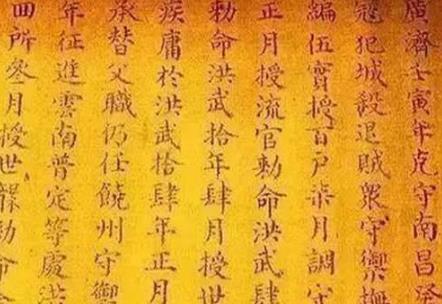 廣濟壬寅年克守南昌癸
寇犯城殺退賊衆守禦撫
編伍實授百戶柒月調守
正月授流官勅命洪武肆
勅命洪武拾年肆月授世
疾庸於洪武拾肆年正月
承替父職仍任饒州守禦
年征進雲南普定等處洪
回所叄月授世襲勅命